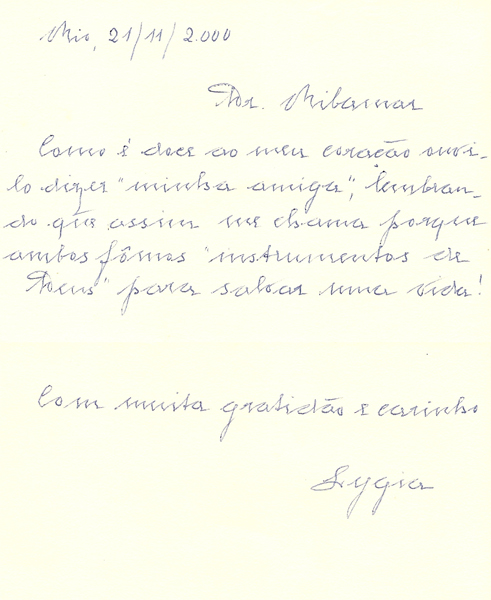 Rio, 21/11/2.000
Dr. Ribamar
Como é doce ao meu coração ouvi-
lo dizer "minha amiga", lembran-
do que assim me chama porque
ambos fômos "instrumentos de
Deus" para salvar uma vida!
Com muita gratidão e carinho
Lygia